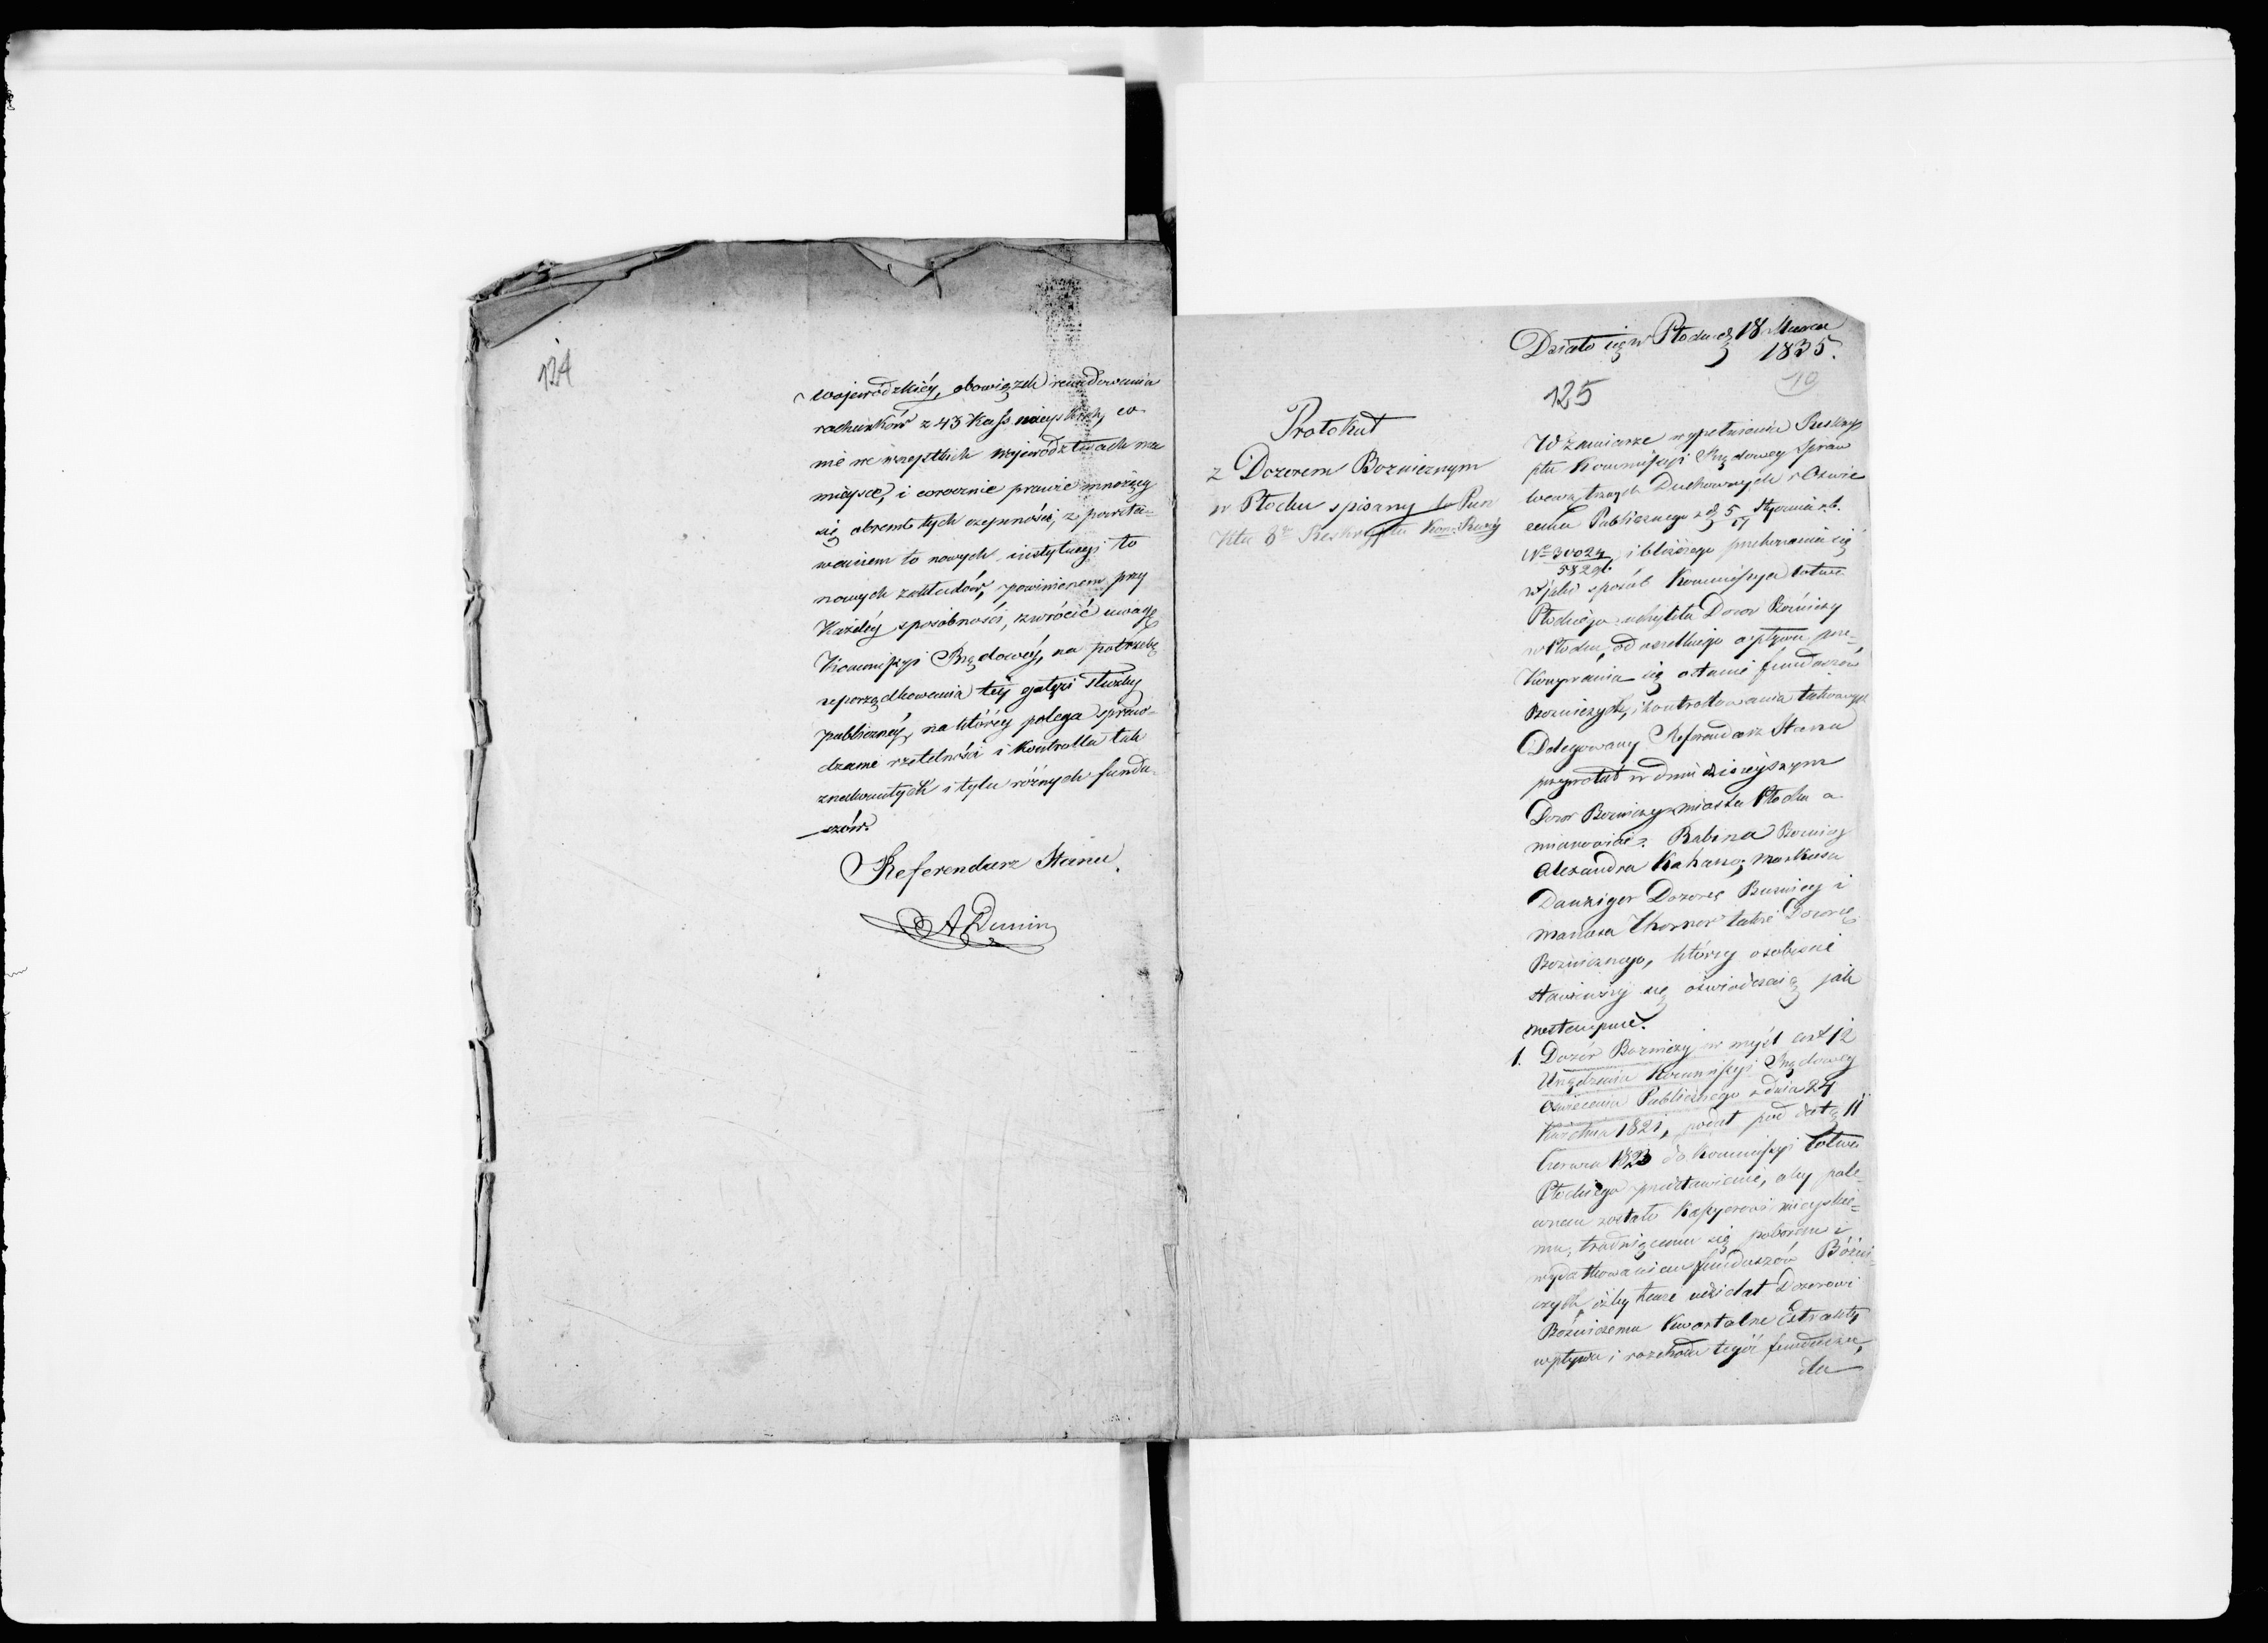 124
wojewódzkiéy, obowiązek rewidowania
rachunków z 43 Kass mieyskich, co
nie we wszystkich Województwach ma
mieysce, i corocznie prawie mnożący
się obręb tych czynności, z powsta-
waniem to nowych instytucyi to
nowych zakładów, powinienem przy
Każdéy sposobności, zwrócić uwagę
Kommissyi Rządowéy, na potrzebę
uporządkowania téy gałęzi służby
publicznéy, na któréy polega spraw-
dzanie rzetelności i Kontrolla tak
znakomitych i tylu różnych fundu-
szów.
Referendarz Stanu
A Dunin
Działo się w Płocku d. 18 Marca
1835.
10
125
Protokuł
z Dozorem Bozniczym
w Płocku spisany do Pun
ktu 8º Reskryptu Kom: Rządy
W zamiarze wypełnienia Reskryp
ptu Kommissyi Rządowey Spraw
Wewnętrznych Duchownych i Oświe
cenia Publicznego z d. 5 Stycznia r.b.
Nº 30024 i bliższego przekonania się
w jaki sposób Kommissya Wotwa
Płockiego uchyliła Dozor Bożniczy
w Płocku, od wszelkiego wpływu prze-
konywania się o stanie funduszów
Bozniczych, i kontrollowania takowych
Delegowany Referendarz Stanu
przywołał w dniu dzisieyszym
Dozor Bozniczy miasta Płocka a
mianowicie: Rabina Bozniczy
Alexandra Kahana; Markusa
Danziger Dozorcę Boznicy i
Manasa Thorner także Dozorcę
Bozniczego, którzy osobiście
stawiwszy się oświadczają jak
następuie.
1. Dozór Bozniczy w myśl art 12
Urządzenia Kommissyi Rządowey
Oświecenia Publicznego z dnia 24
1821, podał pod datą 11
Czerwca 1823 do Kommissyi Wotwa
Płockiego przedstawienie, aby pole-
conem zostało Kassyerowi mieyskie-
mu, trudniącemu się poborem i
wydatkowaniem funduszów Bóżni-
czych, iżby tenże udzielał Dozorowi
Bóżniczemu Kwartalne Extrakty
wpływu i rozchodu tegoż funduszu,
dla